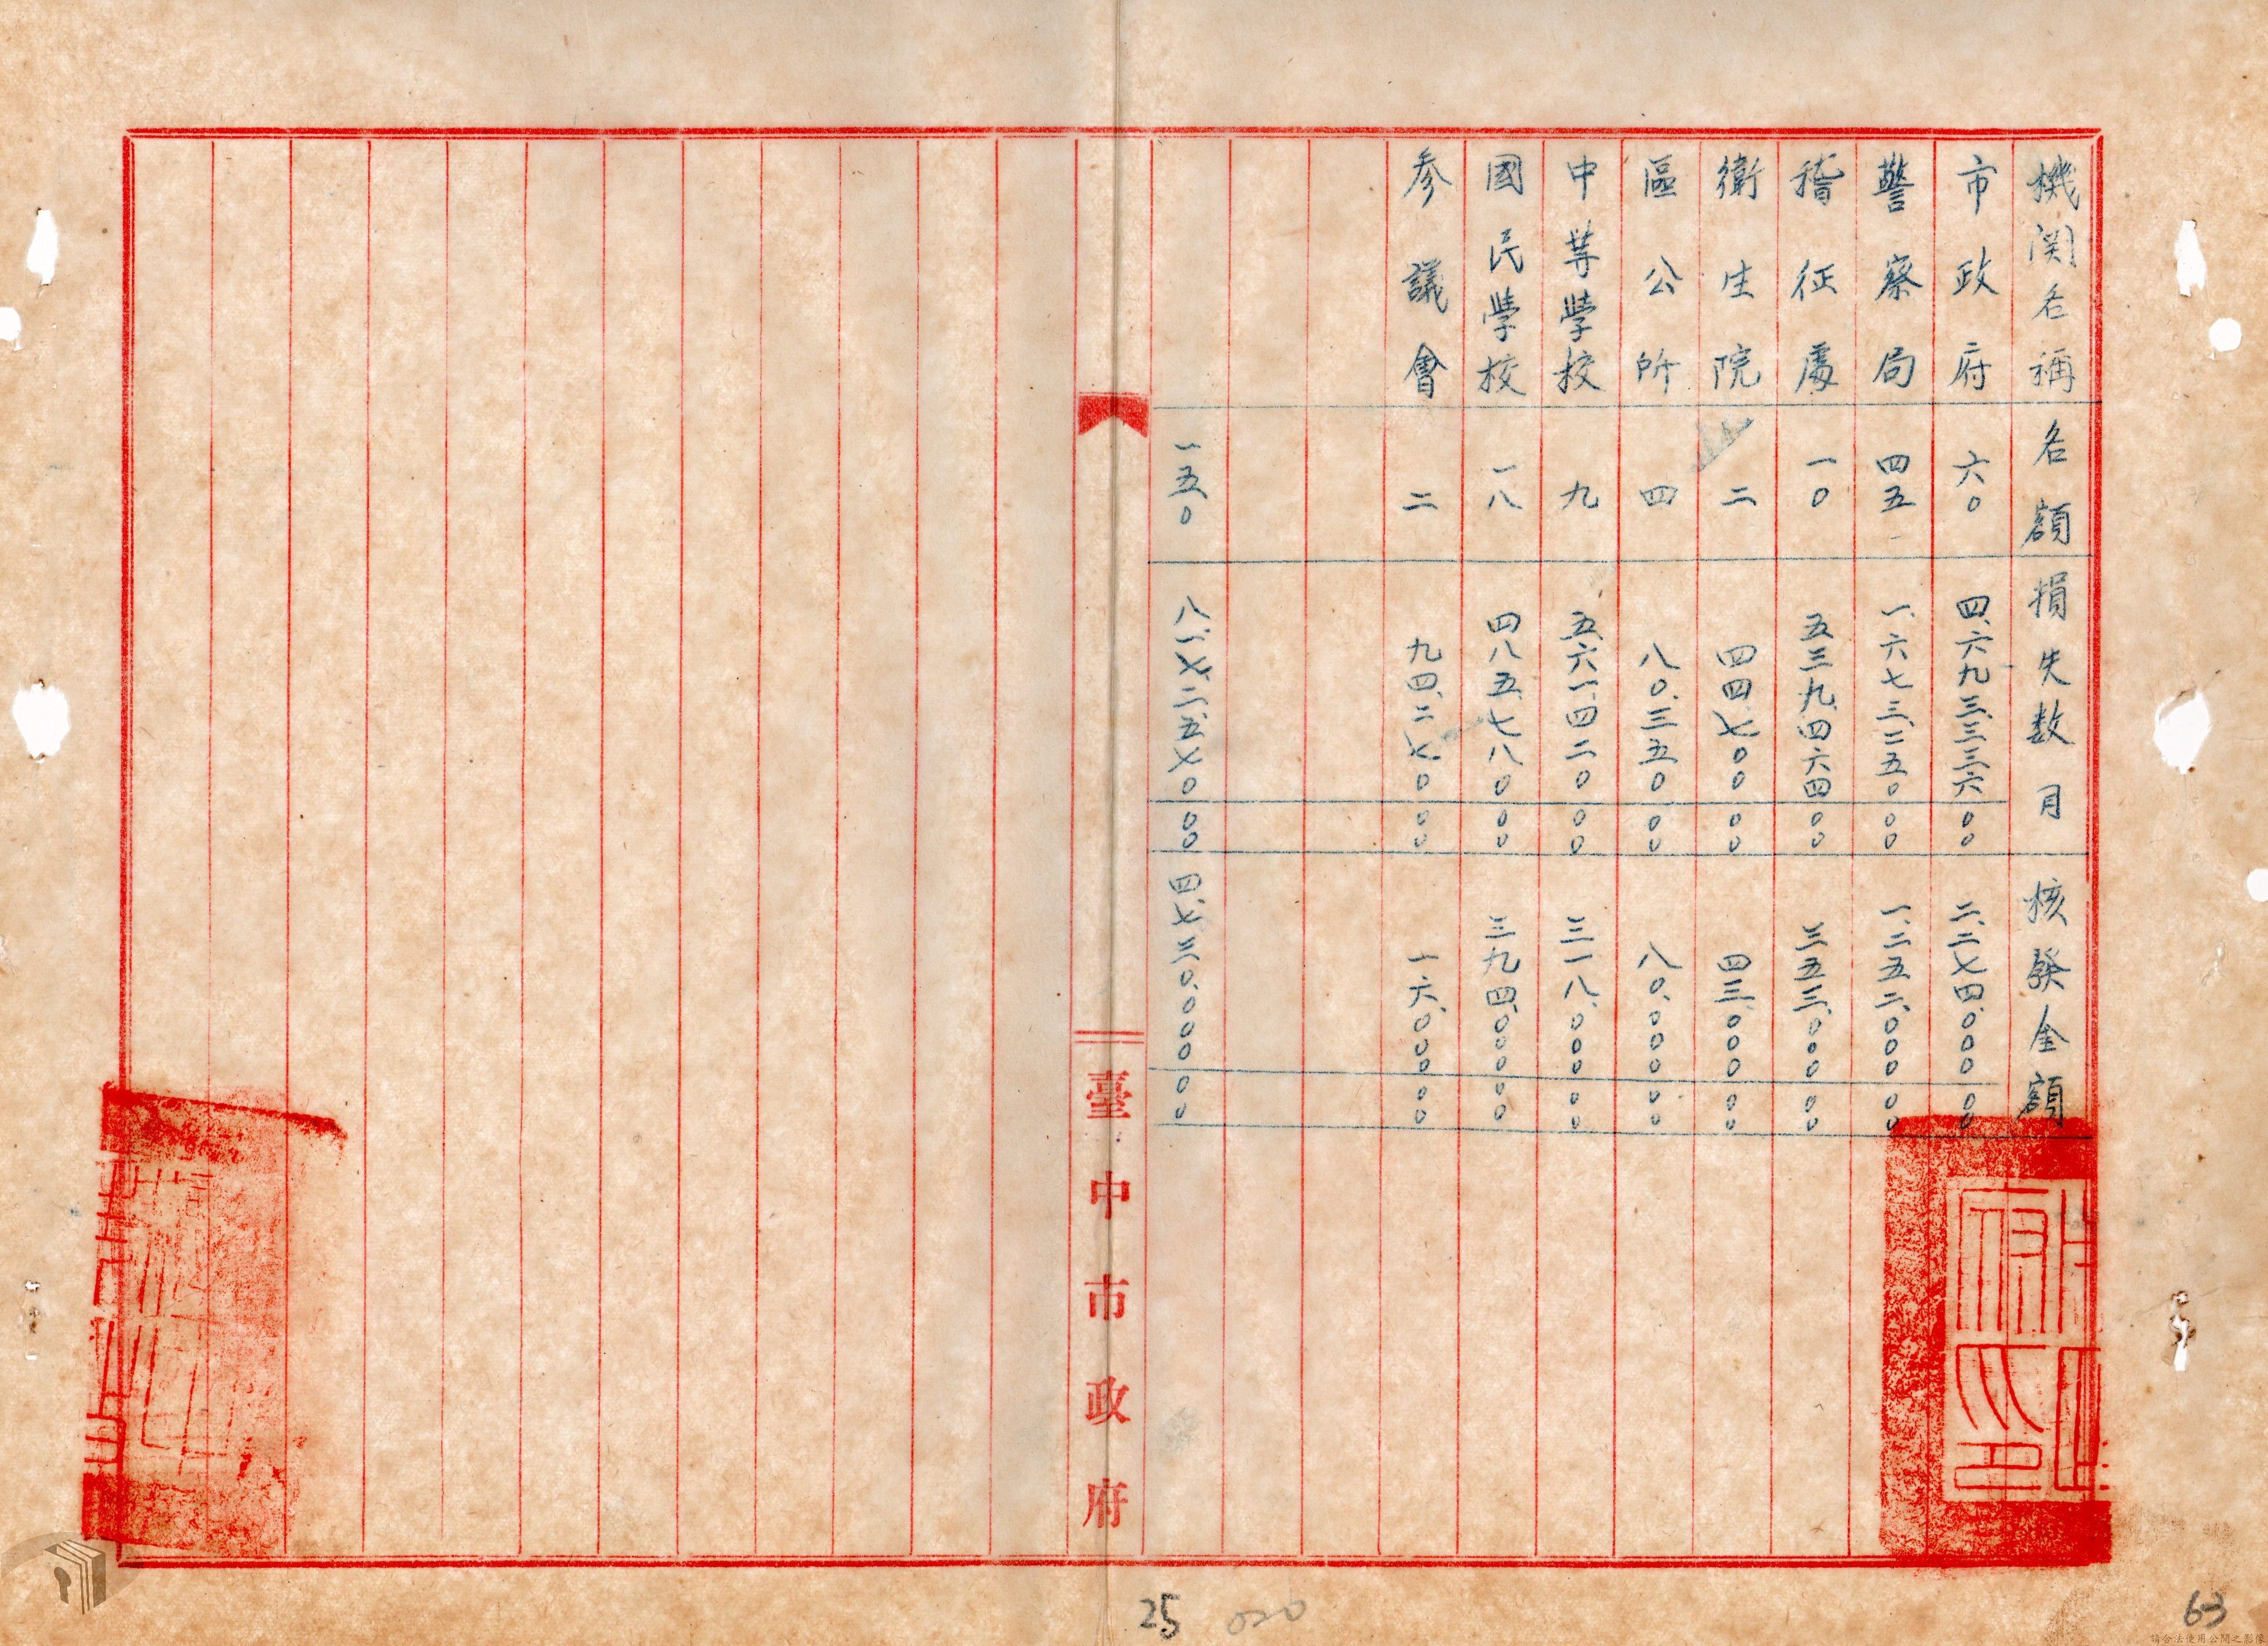 機関名稱 名額 損失数目 核發金額
市政府 六〇 四、六九三、三三六〇〇 二、二七四、〇〇〇〇〇
警察局 四五 一、六七三、二五〇〇〇 一、二五二、〇〇〇〇〇
稽征處 一〇 五三九、四六四〇〇 三五三、〇〇〇〇〇
衛生院 二 四四、七〇〇〇〇 四三、〇〇〇〇〇
區公所 四 八〇、三五〇〇〇 八〇、〇〇〇〇〇
中等學校 九 五六一、四二〇〇〇 三一八、〇〇〇〇〇
國民學校 一八 四八五、七八〇〇〇 三九四、〇〇〇〇〇
参議會 二 九四、二七〇〇〇 一六、〇〇〇〇〇
一五〇 八、一七二、五七〇〇〇 四、七三〇、〇〇〇〇〇
臺中市政府
25
020
63
請合法使用公開之影像